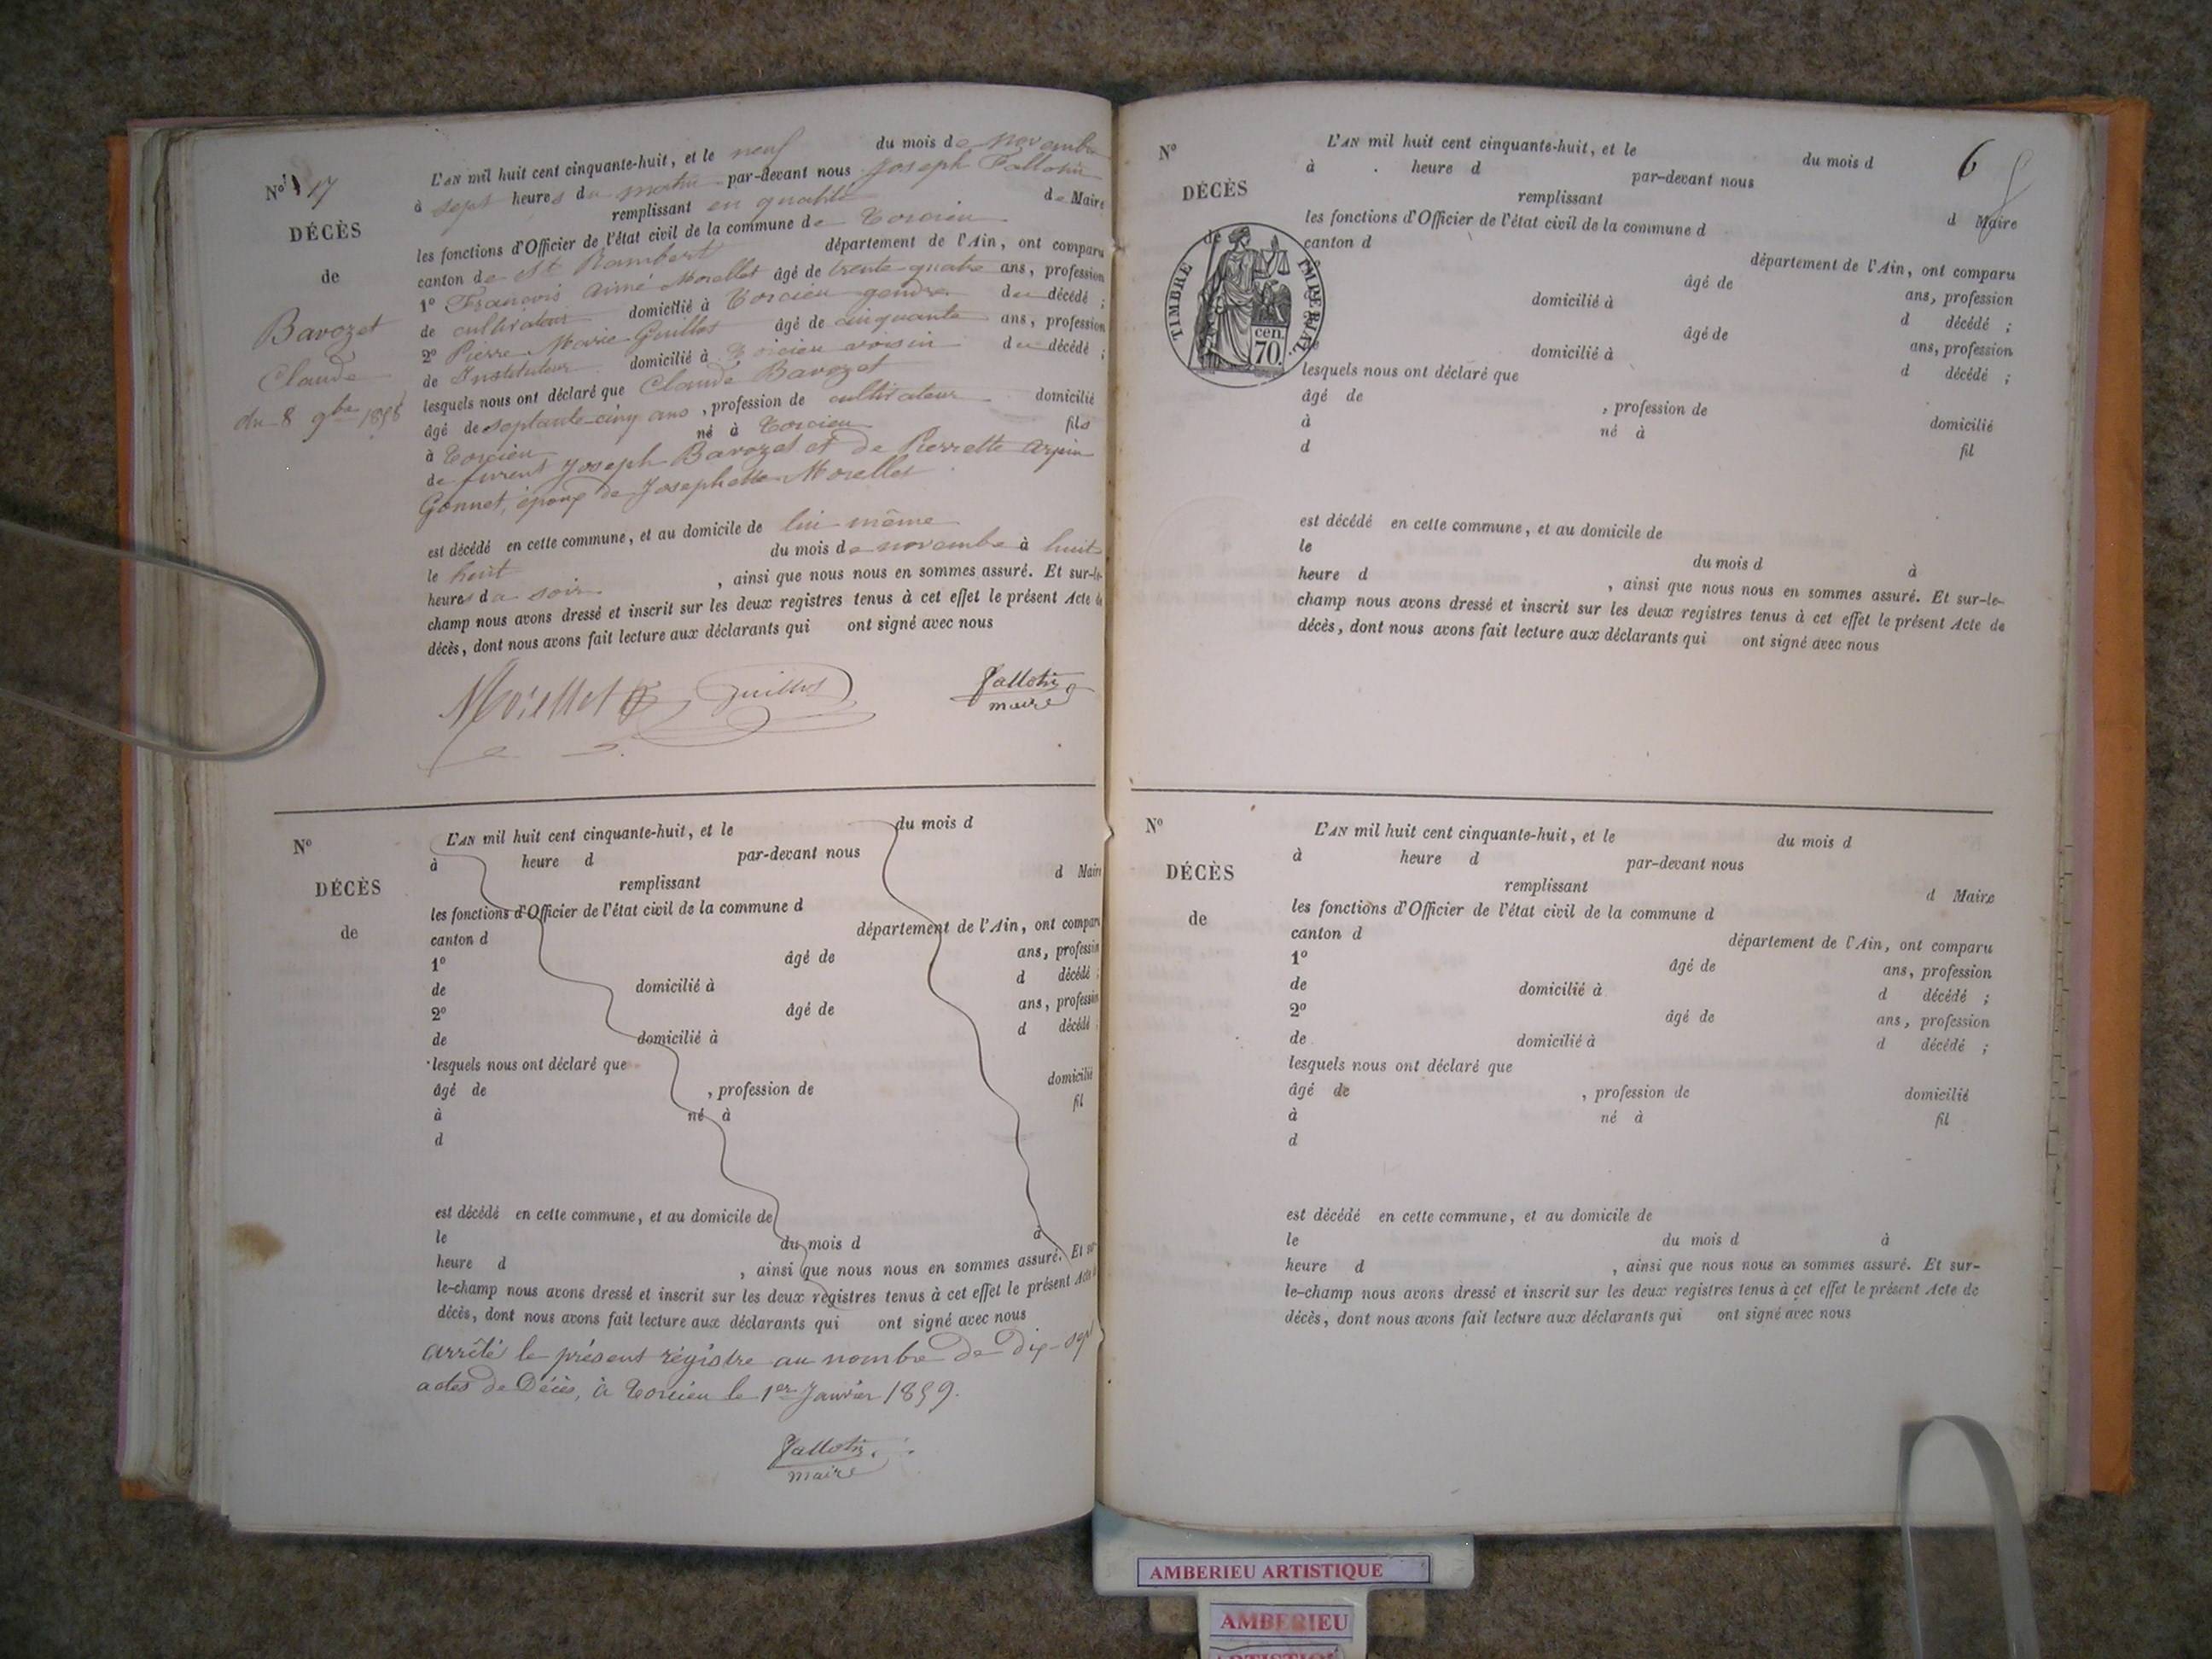 N° 17
DÉCÈS
de
Bavozet
Claude
du 8 9bre 1858
L'AN mil huit cent cinquante-huit, et le neuf du mois de novembre
à sept heures du matin par-devant nous Joseph Fallotin
remplissant en qualité de Maire
les fonctions d'Officier de l'état civil de la commune de Torcieu
canton de St Rambert département de l'Ain, ont comparu
1° François Aimé Morellet âgé de trente-quatre ans, profession
de cultivateur domicilié à Torcieu gendre du décédé ;
2° Pierre Marie Guillot âgé de cinquante ans, profession
de Instituteur domicilié à Torcieu voisin du décédé ;
lesquels nous ont déclaré que Claude Bavozet
âgé de septante-cinq ans, profession de cultivateur domicilié
à Torcieu né à Torcieu fils
de furent Joseph Bavozet et de Pierrette Arpin
Gonnet, époux de Josephette Morellet
est décédé en cette commune, et au domicile de lui même
le huit du mois de novembre à huit
heures du soir , ainsi que nous nous en sommes assuré. Et sur-le-
champ nous avons dressé et inscrit sur les deux registres tenus à cet effet le présent Acte de
décès, dont nous avons fait lecture aux déclarants qui ont signé avec nous
Morellet Guillot Fallotin
maire
N°
DÉCÈS
de
L'AN mil huit cent cinquante-huit, et le du mois d
à heure d par-devant nous
remplissant d Maire
les fonctions d'Officier de l'état civil de la commune d
canton d département de l'Ain, ont comparu
1° âgé de ans, profession
de domicilié à d décédé ;
2° âgé de ans, profession
de domicilié à d décédé ;
lesquels nous ont déclaré que
âgé de , profession de domicilié
à né à fil
d
est décédé en cette commune, et au domicile de
le du mois d à
heure d , ainsi que nous nous en sommes assuré. Et sur-
le-champ nous avons dressé et inscrit sur les deux registres tenus à cet effet le présent Acte de
décès, dont nous avons fait lecture aux déclarants qui ont signé avec nous
arrêté le présent régistre au nombre de Dix-sept
actes de Décès, à Torcieu le 1er Janvier 1859.
Fallotin
maire
6
N°
DÉCÈS
de
TIMBRE IMPERIAL
70 cen.
L'AN mil huit cent cinquante-huit, et le du mois d
à heure d par-devant nous
remplissant d Maire
les fonctions d'Officier de l'état civil de la commune d
canton d département de l'Ain, ont comparu
âgé de ans, profession
domicilié à d décédé ;
âgé de ans, profession
domicilié à d décédé ;
lesquels nous ont déclaré que
âgé de , profession de domicilié
à né à fil
d
est décédé en cette commune, et au domicile de
le du mois d à
heure d , ainsi que nous nous en sommes assuré. Et sur-le-
champ nous avons dressé et inscrit sur les deux registres tenus à cet effet le présent Acte de
décès, dont nous avons fait lecture aux déclarants qui ont signé avec nous
N°
DÉCÈS
de
L'AN mil huit cent cinquante-huit, et le du mois d
à heure d par-devant nous
remplissant d Maire
les fonctions d'Officier de l'état civil de la commune d
canton d département de l'Ain, ont comparu
1° âgé de ans, profession
de domicilié à d décédé ;
2° âgé de ans, profession
de domicilié à d décédé ;
lesquels nous ont déclaré que
âgé de , profession de domicilié
à né à fil
d
est décédé en cette commune, et au domicile de
le du mois d à
heure d , ainsi que nous nous en sommes assuré. Et sur-
le-champ nous avons dressé et inscrit sur les deux registres tenus à cet effet le présent Acte de
décès, dont nous avons fait lecture aux déclarants qui ont signé avec nous
AMBERIEU ARTISTIQUE
AMBERIEU
ARTISTIQUE